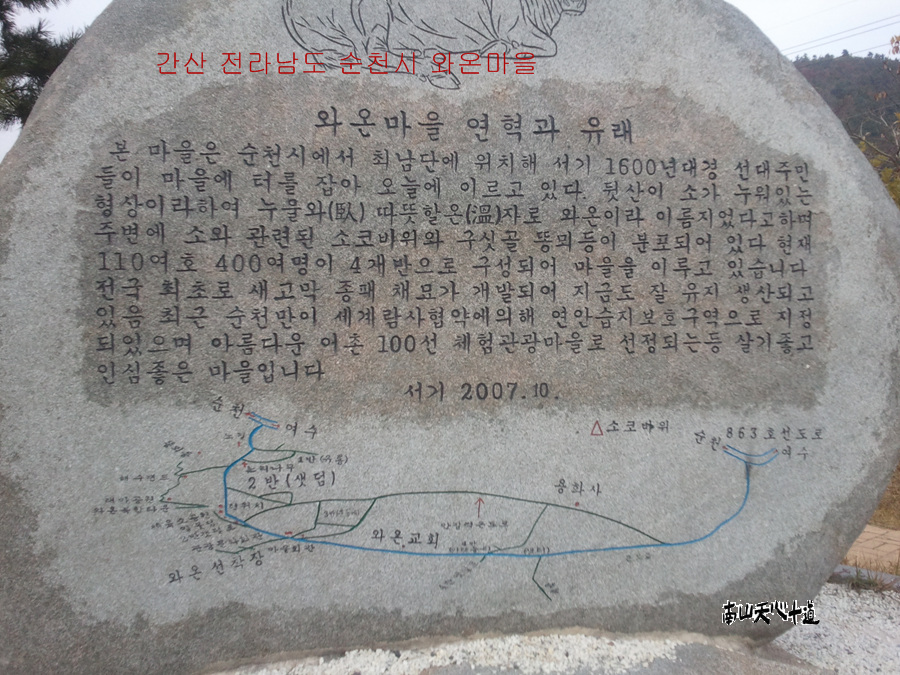 간산 전라남도 순천시 와온마을
와온마을 연혁과 유래
본 마을은 순천시에서 최남단에 위치해 서기 1600년대경 선대주민
들이 마을에 터를 잡아 오늘에 이르고 있다. 뒷산이 소가 누워있는
형상이라하여 누울와(臥) 따뜻할온(温)자로 와온이라 이름지었다고하며
주변에 소와 관련된 소코바위와 구싯골 똥뫼등이 분포되어 있다 현재
110여호 400여명이 4개반으로 구성되어 마을을 이루고 있습니다
전국 최초로 새고막 종패 채묘가 개발되어 지금도 잘 유지 생산되고
있음 최근 순천만이 세계람사협약에의해 연안습지보호구역으로 지정
되있으며 아름다운 어촌 100선 체험관광마을로 선정되는등 살기좋고
인심좋은 마을입니다
서기 2007.10.
순천
여수
소코바위
863호선도로
순천
여수
2반(샛덤)
용화사
와온교회
마을회관
와온 선착장
南山天心十道